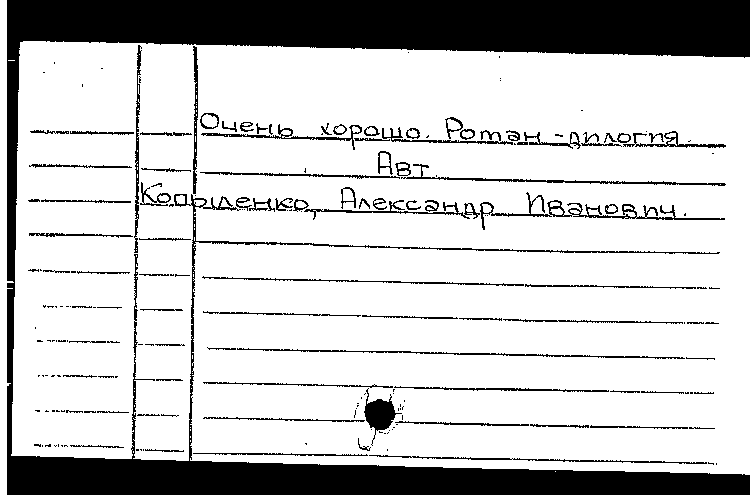 Очень хорошо. Роман-дилогия.
Авт
Копыленко, Александр Иванович.